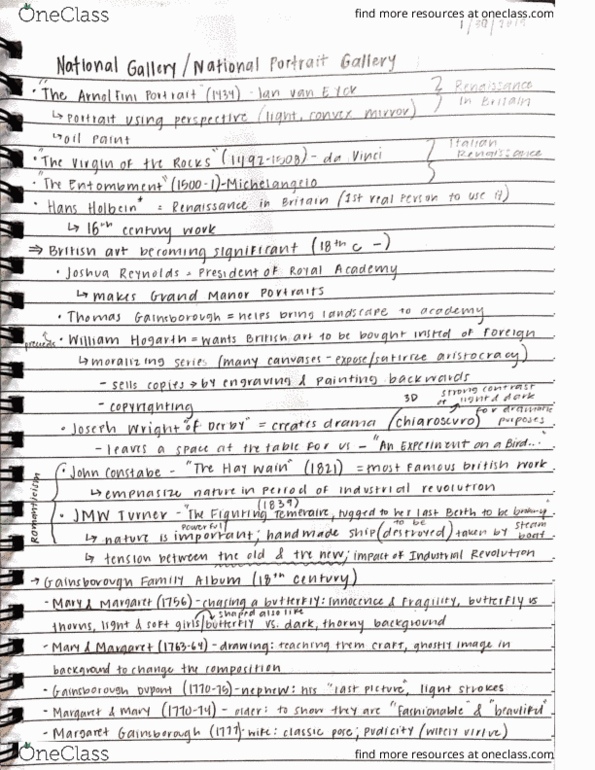 OneClass
find more resources at oneclass.com
National Gallery/National Portrait Gallery
• "The Arnolfini Portrait" (1434) - Jan van Eyck
Renaissance
in Britain
↳ portrait using perspective (light, convex mirror)
↳ oil paint
Italian
Renaissance
• "The Virgin of the Rocks" (1492-1508) - da Vinci
• "The Entombment" (1500-1) - Michelangelo
• Hans Holbein* = Renaissance in Britain (1st real person to use it)
↳ 16th century work
⇒ British art becoming significant (18th c -)
• Joshua Reynolds = President of Royal Academy
↳ makes Grand Manor Portraits
• Thomas Gainsborough = helps bring landscape to academy
precede
• William Hogarth = wants British art to be bought insted of foreign
↳ moralizing series (many canvases - expose/satirize aristocracy)
- sells copies → by engraving & painting backwards
- copyrighting
3D
strong contrast
of light & dark
for dramatic
purposes
• Joseph Wright "of Derby" = creates drama (chiaroscuro)
- leaves a space at the table for us - "An Experiment on a Bird..."
Romanticism
• John Constabe - "The Hay Wain" (1821) = most famous british work
↳ emphasize nature in period of industrial revolution
(1839)
• JMW Turner - "The Figuring Temeraire, tugged to her last Berth to be
powerful
to be
steam
boat
↳ nature is important; handmade ship (destroyed) taken by
↳ tension between the old & the new; impact of Industrial Revolution
→ Gainsborough Family Album (18th century)
- Mary & Margaret (1756) - chasing a butterfly: innocence & fragility, butterfly vs
shaped also like
thorns, light & soft girls/butterfly vs. dark, thorny background
- Mary & Margaret (1763-64) - drawing: teaching them craft, ghostly image in
background to change the composition
- Gainsborough Dupont (1770-75) - nephew: his "last picture", light strokes
• Margaret & Mary (1770-74) - older: to show they are "fashionable" & "beautiful"
• Margaret Gainsborough (1777) - wife: classic pose; pudicity (wifely virtue)
OneClass
find more resources at oneclass.com